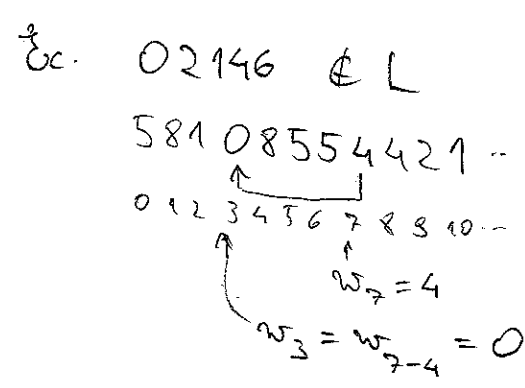 Ex. 02146 ∉ L
58108554421 ..
0 1 2 3 4 5 6 7 8 9 10 ...
w₇ = 4
w₃ = w₇₋₄ = 0